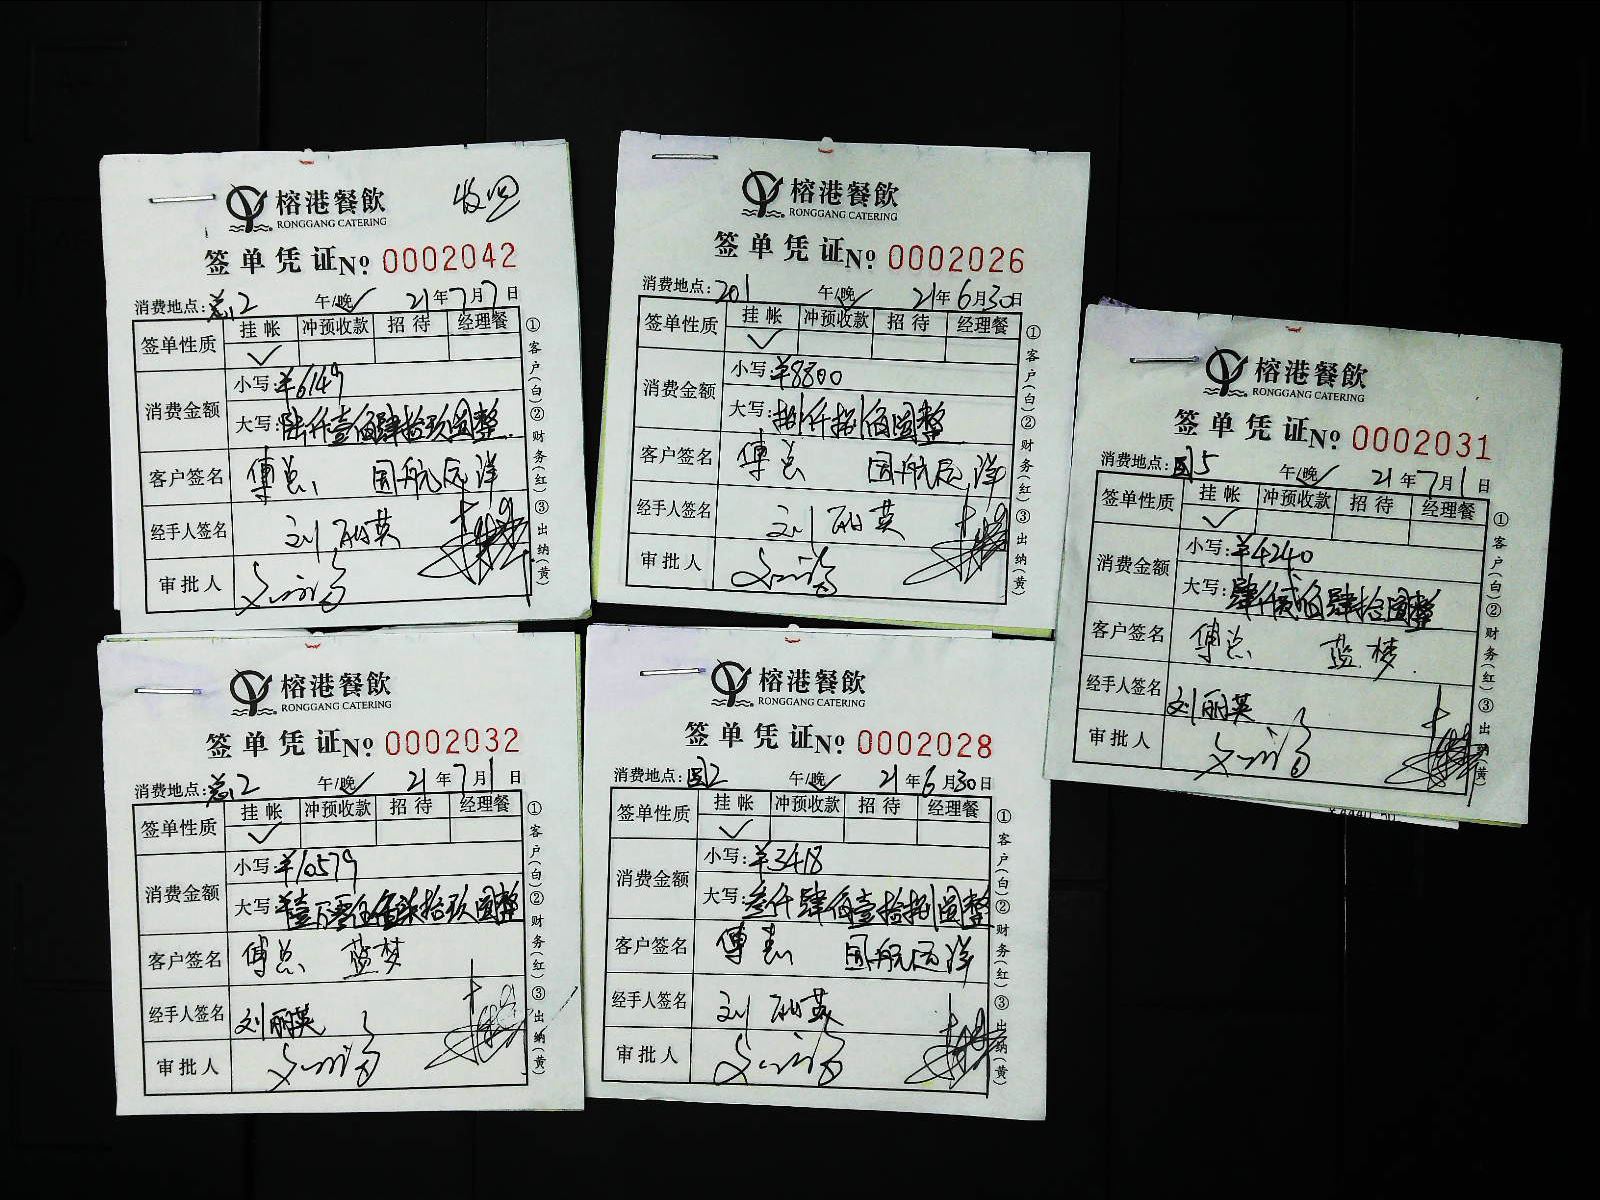 榕港餐飲
RONGGANG CATERING
签单凭证No 0002042
消费地点: 总2 午/晚✓ 21年7月7日
签单性质 挂帐 冲预收款 招待 经理餐
✓
消费金额 小写:¥6149
大写:陆仟壹佰肆拾玖圆整
客户签名 傅总 国航远洋
经手人签名 刘丽英
审批人
①客户(白)②财务(红)③出纳(黄)
榕港餐飲
RONGGANG CATERING
签单凭证No 0002026
消费地点: 201 午/晚✓ 21年6月30日
签单性质 挂帐 冲预收款 招待 经理餐
✓
消费金额 小写:¥8800
大写:捌仟捌佰圆整
客户签名 傅总 国航远洋
经手人签名 刘丽英
审批人
①客户(白)②财务(红)③出纳(黄)
榕港餐飲
RONGGANG CATERING
签单凭证No 0002031
消费地点: 园5 午/晚✓ 21年7月1日
签单性质 挂帐 冲预收款 招待 经理餐
✓
消费金额 小写:¥4240
大写:肆仟贰佰肆拾圆整
客户签名 傅总 蓝梦
经手人签名 刘丽英
审批人
①客户(白)②财务(红)③出纳(黄)
榕港餐飲
RONGGANG CATERING
签单凭证No 0002032
消费地点: 总2 午/晚✓ 21年7月1日
签单性质 挂帐 冲预收款 招待 经理餐
✓
消费金额 小写:¥10579
大写:壹万零伍佰柒拾玖圆整
客户签名 傅总 蓝梦
经手人签名 刘丽英
审批人
①客户(白)②财务(红)③出纳(黄)
榕港餐飲
RONGGANG CATERING
签单凭证No 0002028
消费地点: 园2 午/晚✓ 21年6月30日
签单性质 挂帐 冲预收款 招待 经理餐
✓
消费金额 小写:¥3418
大写:叁仟肆佰壹拾捌圆整
客户签名 傅总 国航远洋
经手人签名 刘丽英
审批人
①客户(白)②财务(红)③出纳(黄)